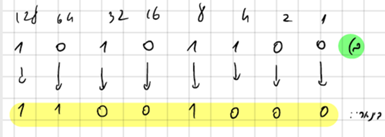 128 64 32 16 8 4 2 1
1 0 1 0 1 1 0 0
1 1 0 0 1 0 0 0